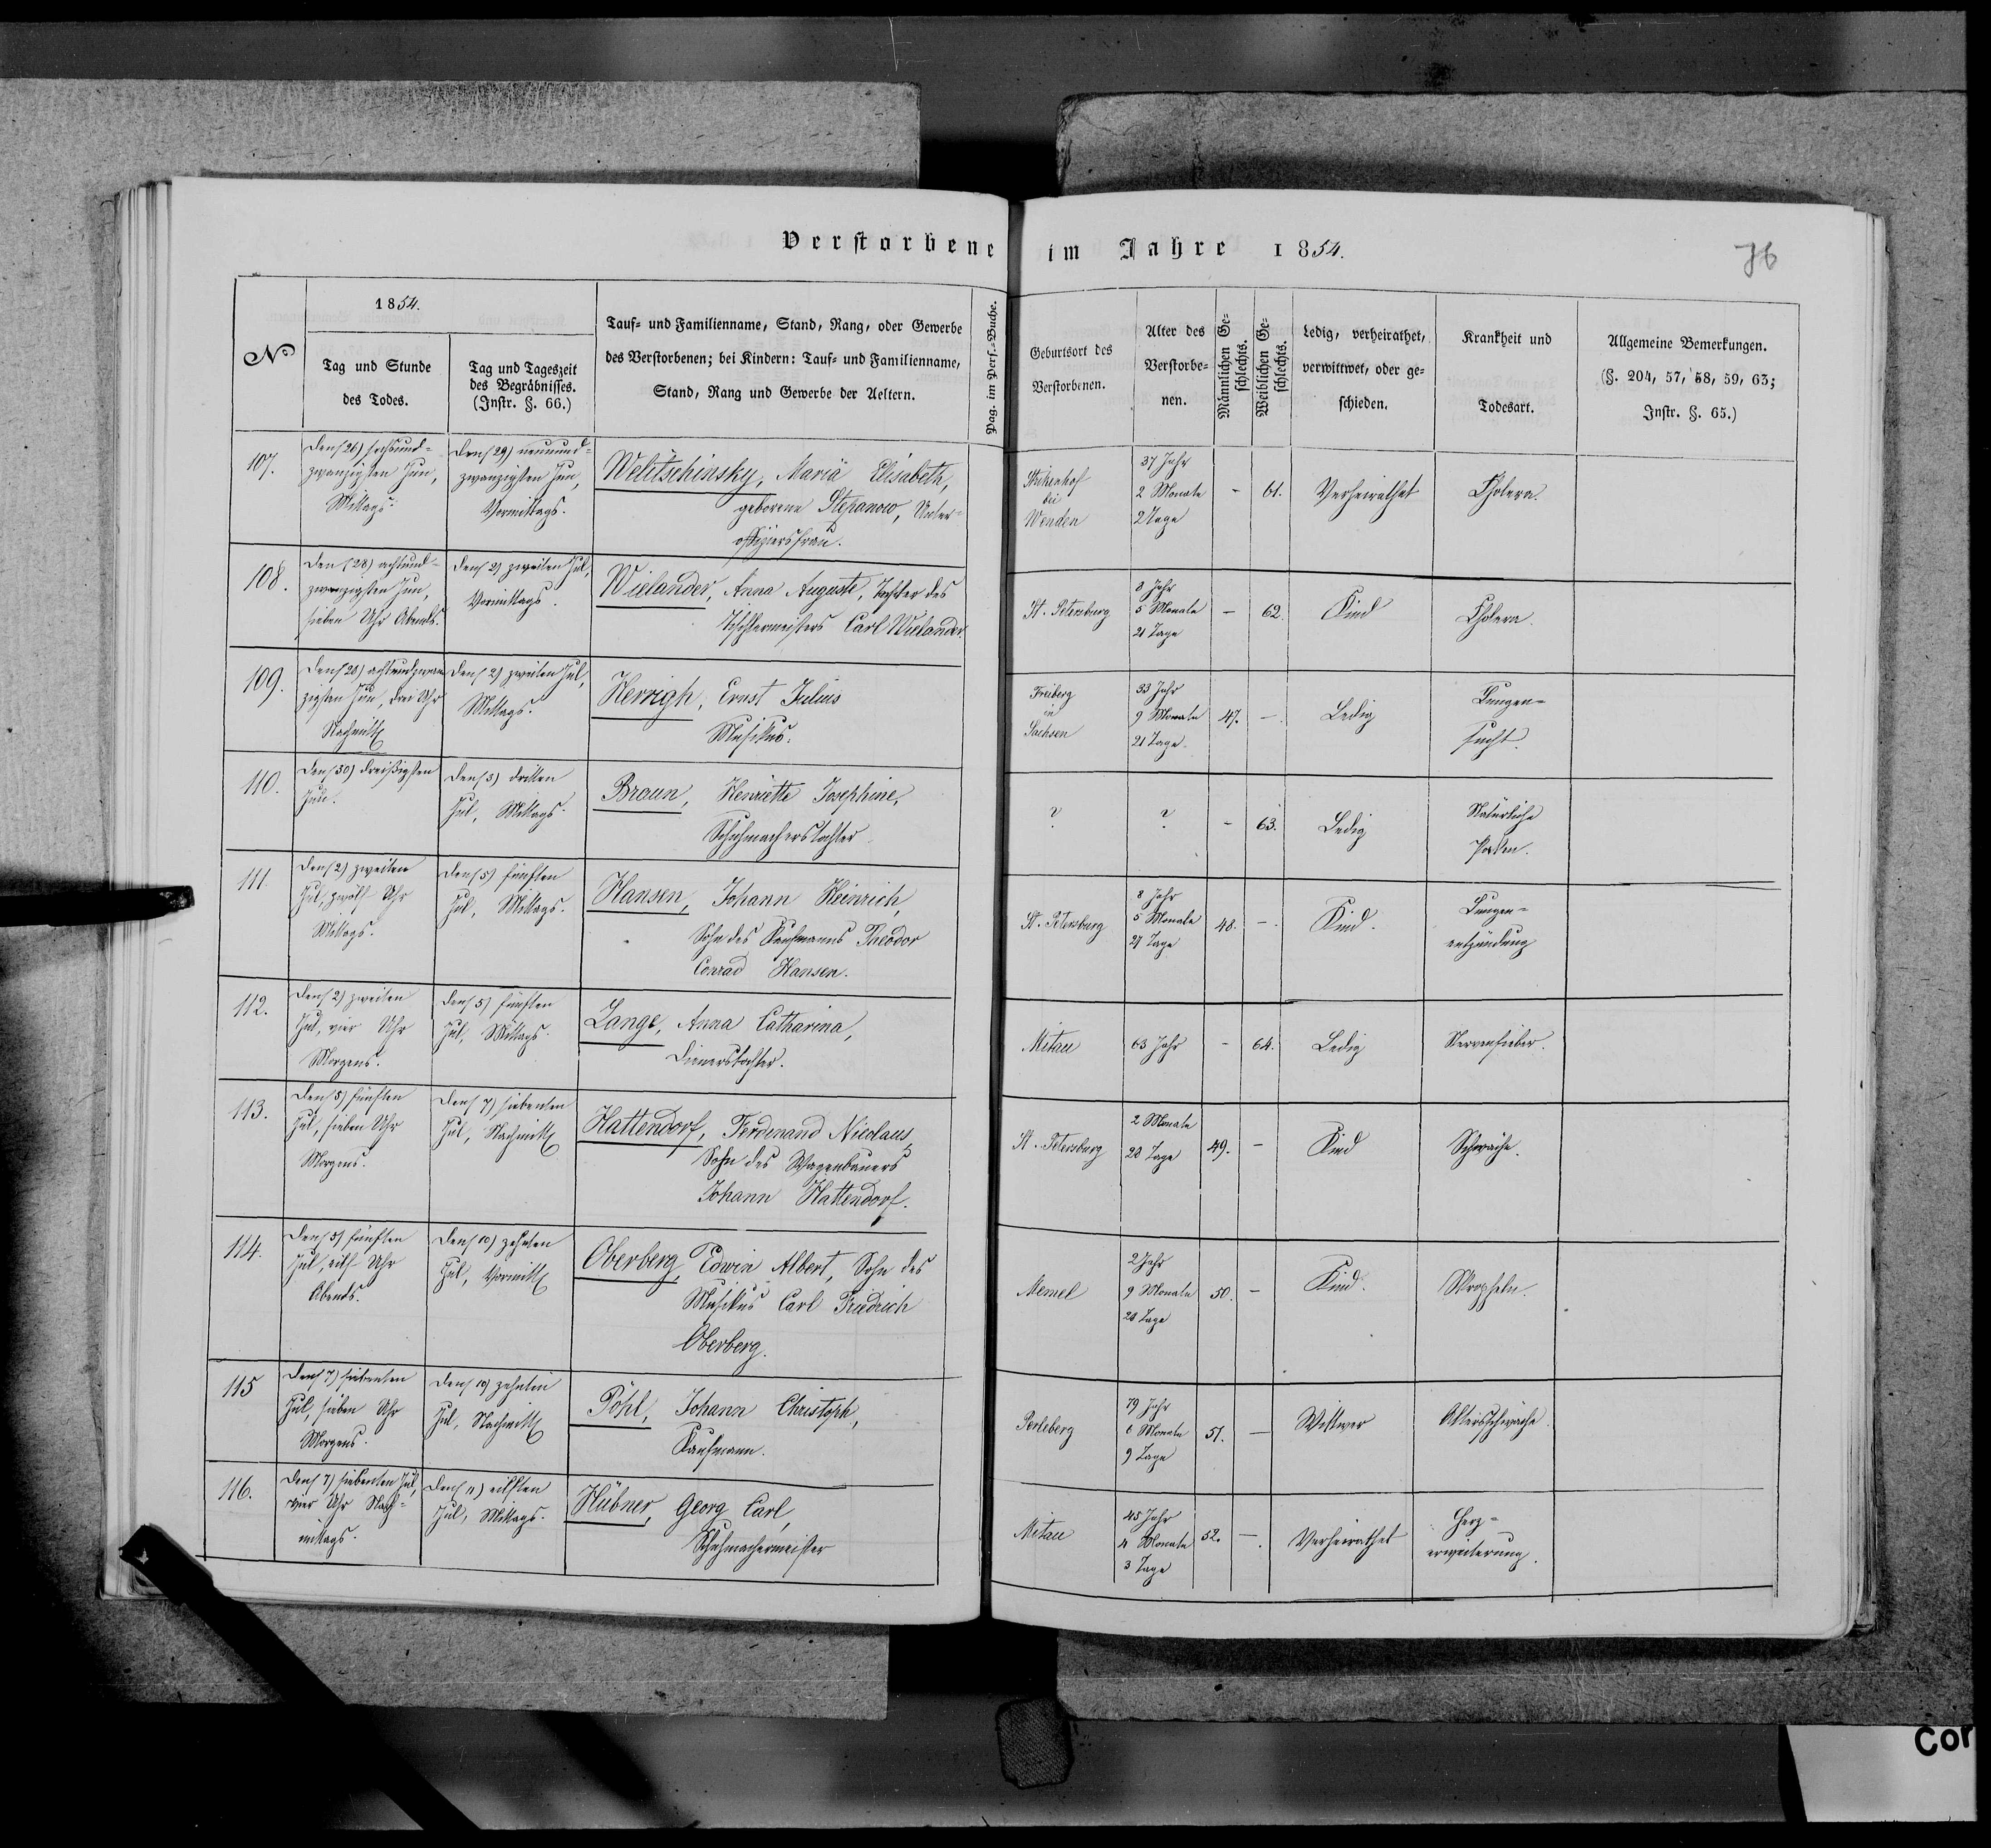 Verstorbene im Jahre 1854.
76
No
1854.
Tag und Stunde
des Todes.
Tag und Tageszeit
des Begräbnisses.
(Instr. §. 66.)
Tauf- und Familienname, Stand, Rang, oder Gewerbe
des Verstorbenen; bei Kindern: Tauf- und Familienname,
Stand, Rang und Gewerbe der Aeltern.
Pag. im Pers.-Buche.
Geburtsort des
Verstorbenen.
Alter des
Verstorbe-
nen.
Männlichen Ge-
schlechts.
Weiblichen Ge-
schlechts.
Ledig, verheirathet,
verwittwet, oder ge-
schieden.
Krankheit und
Todesart.
Allgemeine Bemerkungen.
(§. 204, 57, 58, 59, 63;
Instr. §. 65.)
107.
den (26) sechsund-
zwanzigsten Jun,
Mittags.
den (29) neunund-
zwanzigsten Jun,
Vormittags.
Welitschinsky, Maria Elisabeth,
geborene Stepanow, Unter-
offiziersfrau.
bei
Wenden
37 Jahr
2 Monate
2 Tage
-
61.
Verheirathet
Cholera.
108.
den (28) achtund-
zwanzigsten Jun,
sieben Uhr Abends.
den (2) zweiten Jul,
Vormittags.
Wielander, Anna Auguste, Tochter des
Tischlermeisters Carl Wielander.
St. Petersburg
8 Jahr
5 Monate
21 Tage
-
62.
Kind
Cholera.
109.
den (28) achtundzwan
zigsten Jun, drei Uhr
Nachmitt
den (2) zweiten Jul,
Mittags.
Herrigh, Ernst Julius
Musikus.
Freiberg
in
Sachsen
33 Jahr
9 Monate
21 Tage
47.
-
Ledig
Lungen-
sucht.
110.
den (30) dreißigsten
Juni.
den (3) dritten
Jul, Mittags.
Braun, Henriette Josephine,
Schuhmacherstochter
?
?
-
63.
Ledig
Natürliche
Pocken.
111.
den (2) zweiten
Jul, zwölf Uhr
Mittags.
den (5) fünften
Jul, Mittags.
Hansen, Johann Heinrich,
Sohn des Kaufmanns Theodor
Conrad Hansen.
St. Petersburg
8 Jahr
5 Monate
27 Tage
48.
-
Kind.
Lungen-
entzündung
112.
den (2) zweiten
Jul, vier Uhr
Morgens.
den (5) fünften
Jul, Mittags.
Lange, Anna Catharina,
Dienerstochter.
Mitau
63 Jahr
-
64.
Ledig
Nervenfieber.
113.
den (5) fünften
Jul, sieben Uhr
Morgens.
den (7) siebenten
Jul, Nachmitt
Hattendorf, Ferdinand Nicolaus,
Sohn des Wagenbauers
Johann Hattendorf.
St. Petersburg
2 Monate
20 Tage
49.
-
Kind
Schwäche.
114.
den (5) fünften
Jul, eilf Uhr
Abends.
den (10) zehnten
Jul, Vormitt
Oberberg, Edwin Albert, Sohn des
Musikus Carl Friedrich
Oberberg.
Memel
2 Jahr
9 Monate
20 Tage
50.
-
Kind.
Skropheln.
115
den (7) siebenten
Jul, sieben Uhr
Morgens.
den (10) zehnten
Jul, Nachmitt
Pöhl, Johann Christoph,
Kaufmann.
Perleberg
79 Jahr
6 Monate
9 Tage
51.
-
Wittwer
Altersschwäche.
116.
den (7) siebenten Jul,
vier Uhr Nach-
mittags.
den (11) eilften
Jul, Mittags.
Hübner, Georg Carl,
Schuhmachermeister
Mitau
45 Jahr
4 Monate
3 Tage
52.
-
Verheirathet
Herz-
erweiterung.
Cor